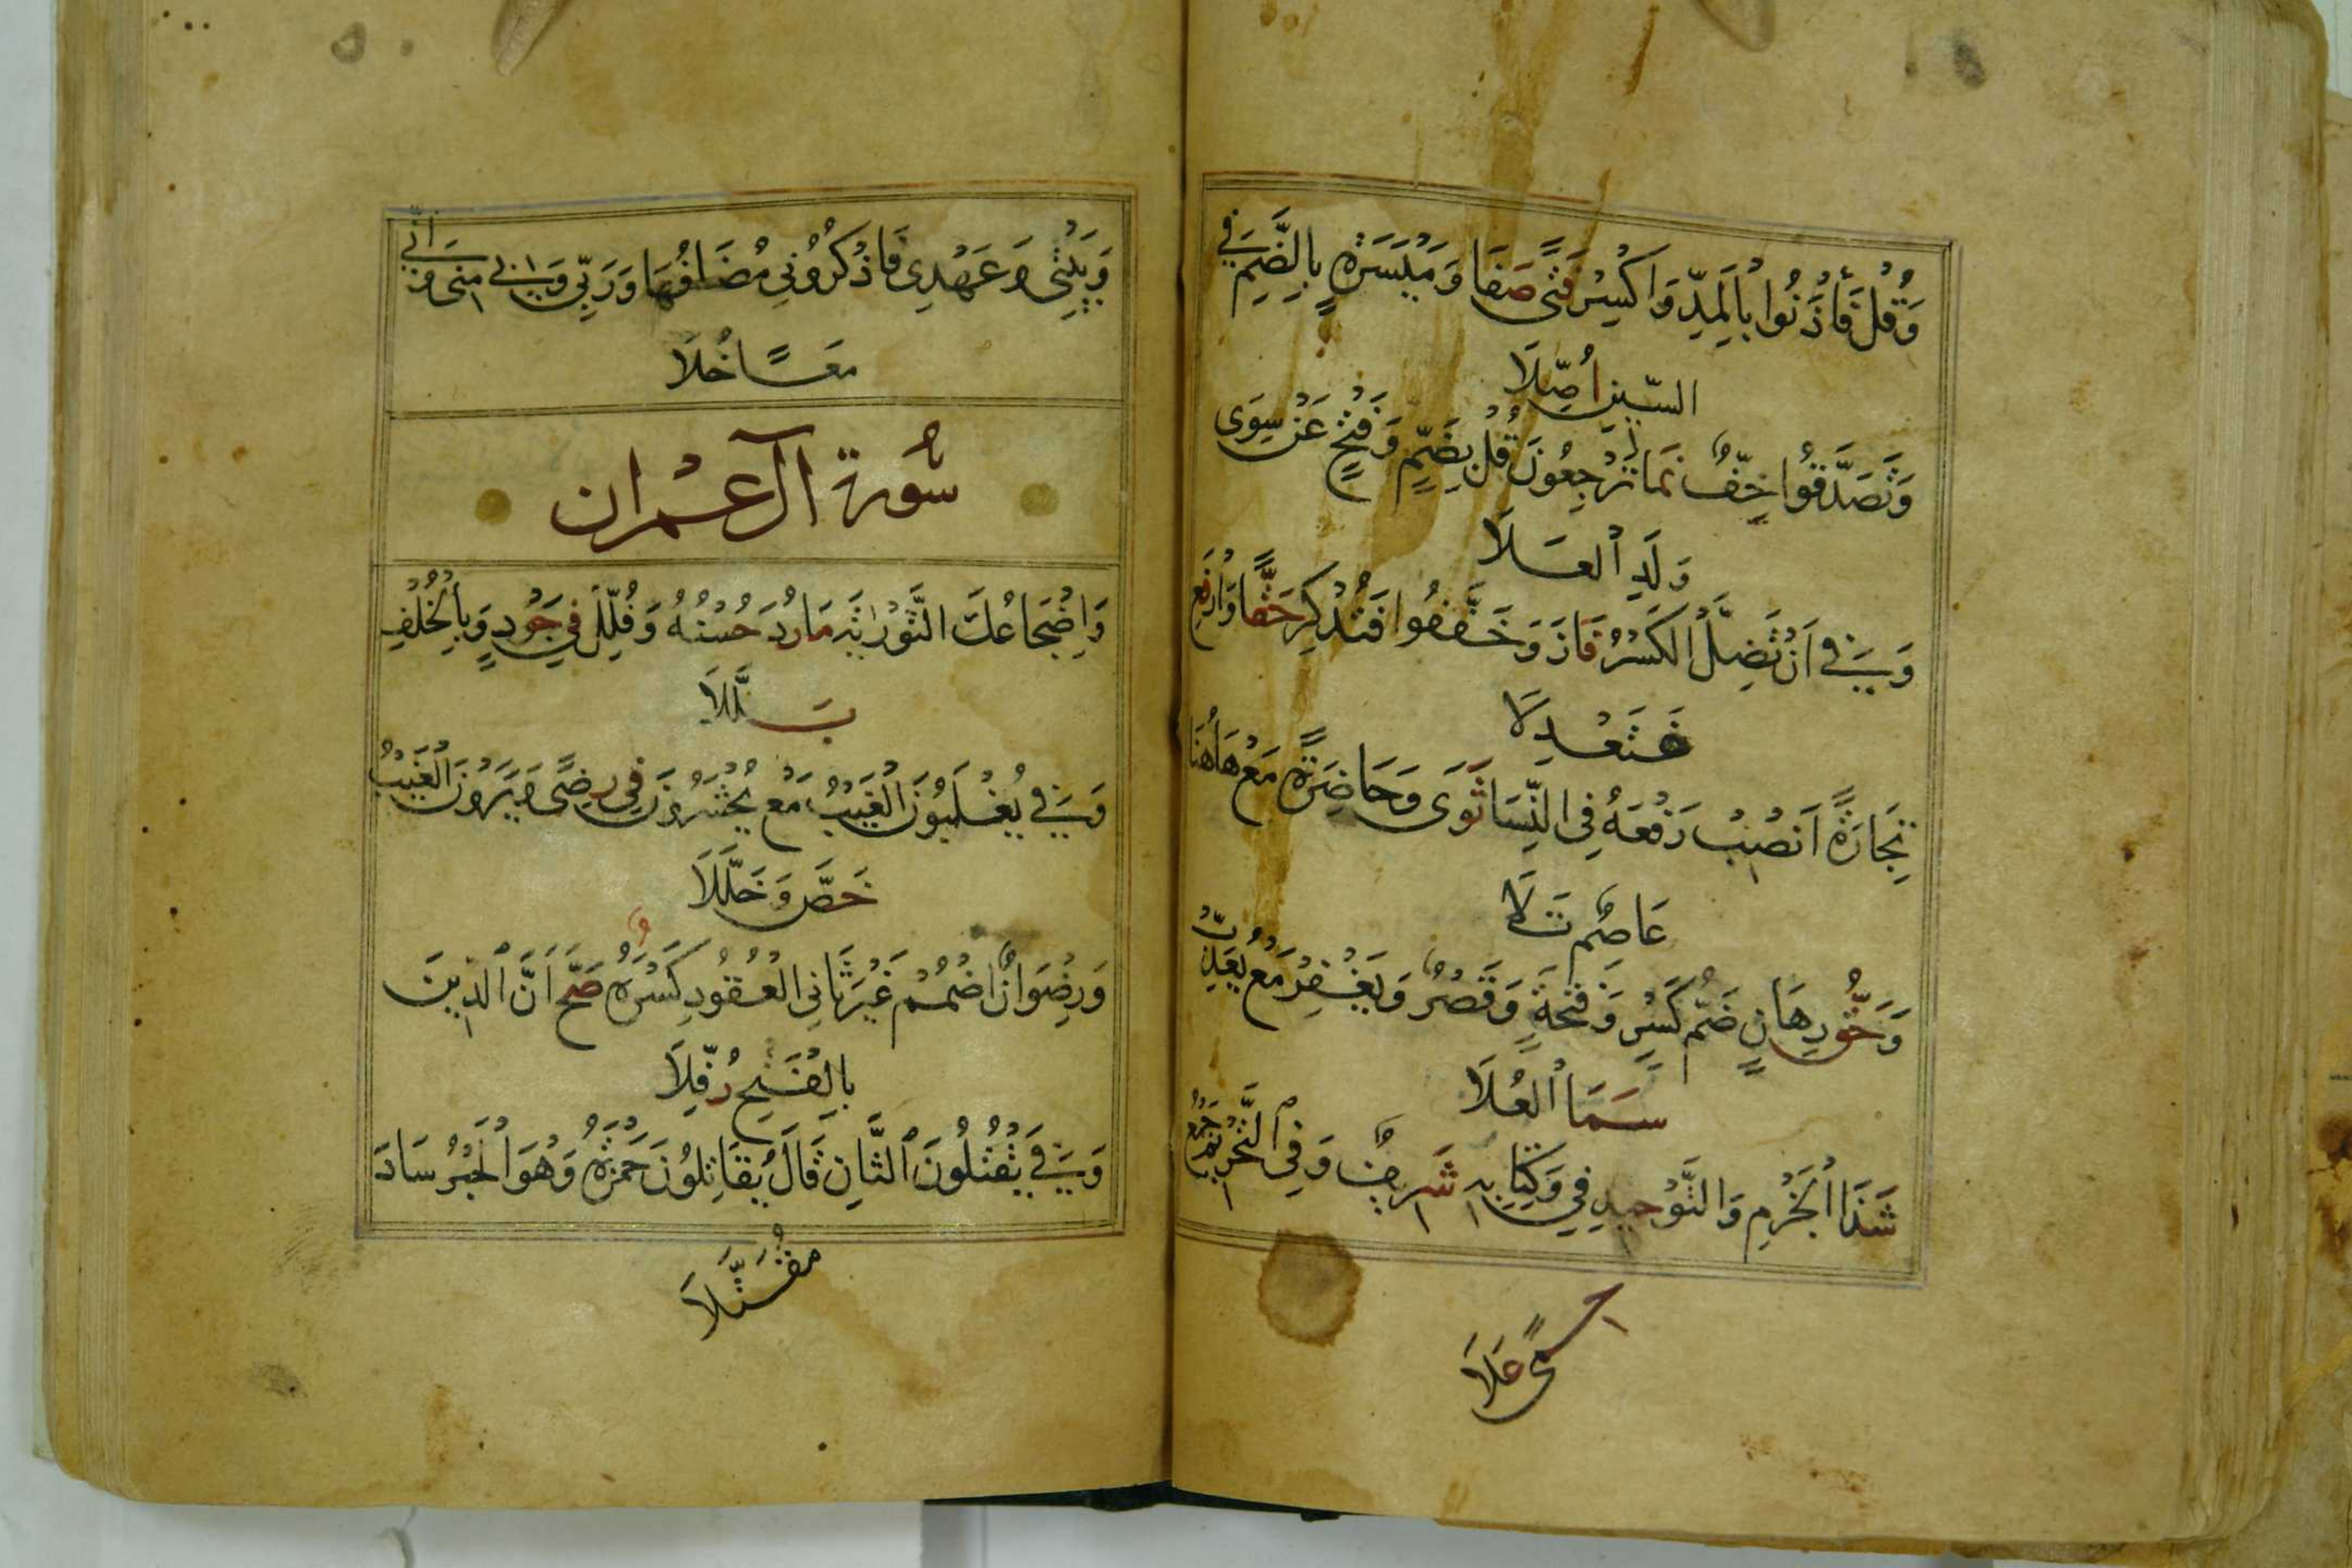 وَقُلْ فَأْذَنُوا بِالْمَدِّ وَاكْسِرْ فَتًى صَفَا وَمَيْسَرَةٍ بِالضَّمِّ فِي
السِّينِ أُصِّلَا
وَتَصَدَّقُوا خِفٌّ نَمَا تَرْجِعُونَ قُلْ بِضَمٍّ وَفَتْحٍ عَنْ سِوَى
وَلَدِ الْعَلَا
وَفِي أَنْ تَضِلَّ الْكَسْرُ فَازَ وَخَفَّفُوا فَتُذْكِرَ حَقًّا وَارْفَعِ
فَتَعْدِلَا
تِجَارَةٌ انْصِبْ رَفْعَهُ فِي النِّسَا ثَوَى وَحَاضِرَةٌ مَعْ هَاهُنَا
عَاصِمٌ تَلَا
وَحَقُّ رِهَانٍ ضَمُّ كَسْرٍ وَفَتْحَةٍ وَقَصْرٌ وَيَغْفِرْ مَعْ يُعَذِّبْ
سَمَا الْعُلَا
شَذَا الْجَزْمِ وَالتَّوْحِيدِ فِي وَكِتَابِهِ شَرِيفٌ وَفِي التَّحْرِيمِ جَمْعُ
حِمًى عَلَا
وَبَيْتِي وَعَهْدِي فَاذْكُرُونِي مُضَافُهَا وَرَبِّي وَبِي مِنِّي وَإِنِّي
مَعًا حُلَا
سُورة آل عمْران
وَإِضْجَاعُكَ التَّوْرَاةَ مَا رُدَّ حُسْنُهُ وَقُلِّلَ فِي جَوْدٍ وَبِالْخُلْفِ
بَلَّلَا
وَفِي يُغْلَبُونَ الْغَيْبُ مَعْ يُحْشَرُونَ فِي رِضًى وَيَرَوْنَ الْغَيْبُ
خَصَّ وَخَلَّلَا
وَرِضْوَانٌ اضْمُمْ غَيْرَ ثَانِي الْعُقُودِ كَسْرَهُ صَحَّ أَنَّ الدِّينَ
بِالْفَتْحِ رُفِّلَا
وَفِي يَقْتُلُونَ الثَّانِ قَالَ يُقَاتِلُونَ حَمْزَةُ وَهْوَ الْحَبْرُ سَادَ
مُقَتَّلَا